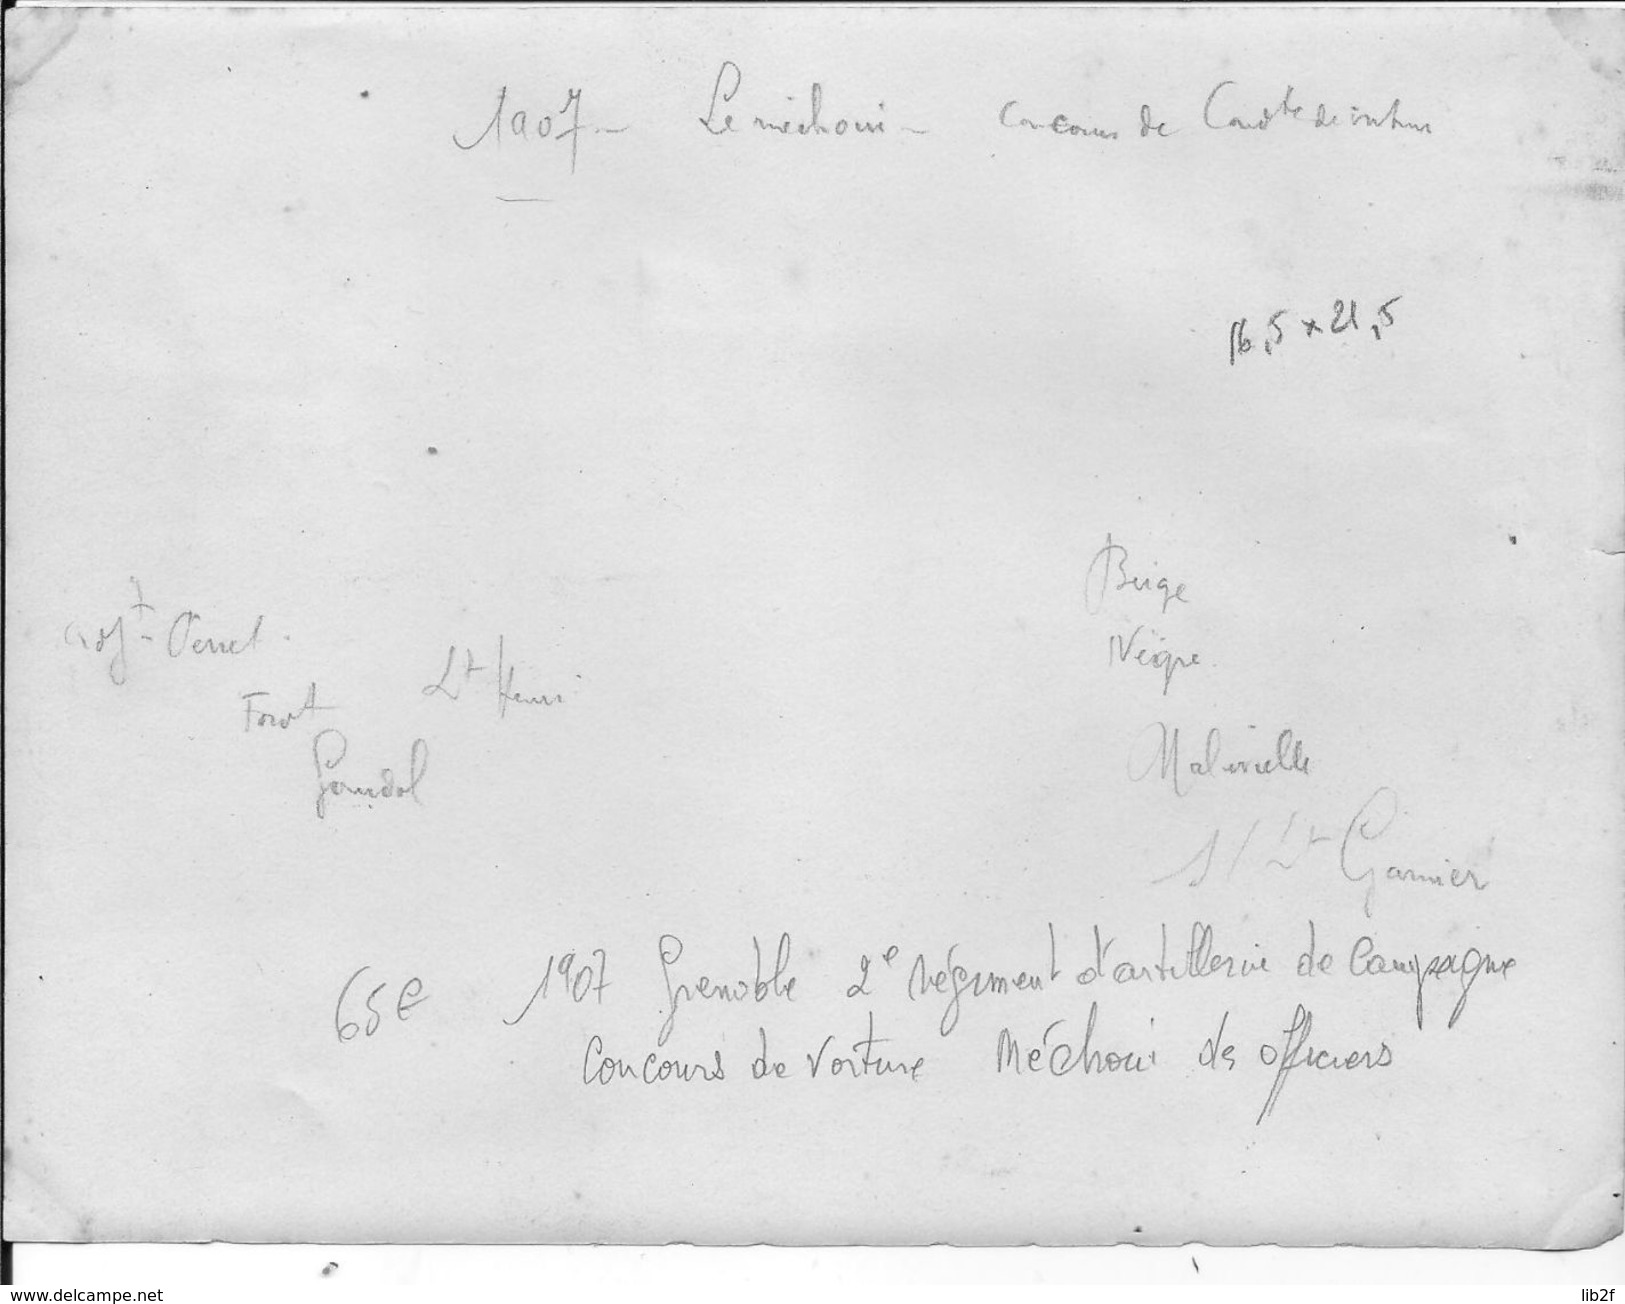 1907 - Le méchoui - Concours de Conduite de voitures
16,5 x 21,5
Adjt - Perret.
Lt Henri
Forot
Beige
Nègre.
Malevielle
S/Lt Garnier
65€
1907 Grenoble 2e régiment d'artillerie de Campagne
Concours de Voiture Méchoui des officiers
www.delcampe.net
lib2f